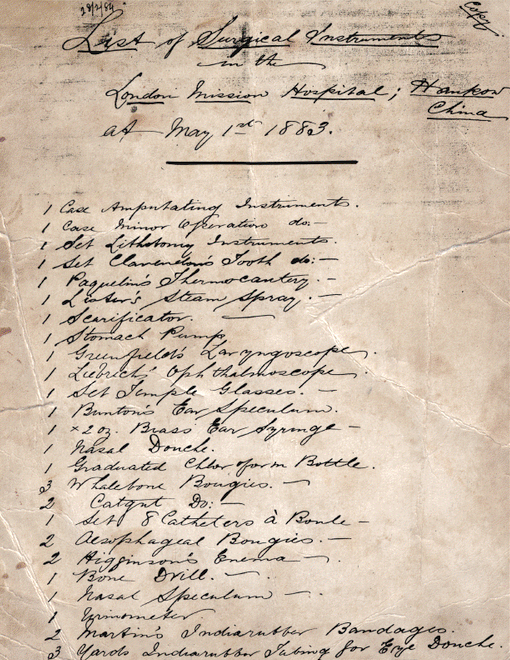 Copy
List of Surgical Instruments
in the
London Mission Hospital; Hankow
China
at May 1st 1883.
1 Case Amputating Instruments.
1 Case Minor Operation do:-
1 Set Lithotomy Instruments.
1 Set Clarendon's Tooth do:-
1 Paquelin's Thermocautery.-
1 Lister's Steam Spray.-
1 Scarificator. -
1 Stomach Pump
1 Greenfield's Laryngoscope.
1 Liebrich' Ophthalmoscope
1 Set Temple Glasses.-
1 Bunton's Ear Speculum.
1 x 2 oz. Brass Ear Syringe -
1 Nasal Douche.
1 Graduated Chloroform Bottle.
3 Whalebone Bougies. -
2 Catgut Do: -
1 Set 8 Catheters à Boule -
2 Aesophageal Bougies. -
2 Higginson's Enema -
1 Bone Drill. -
1 Nasal Speculum -
1 Urinometer
2 Martin's Indiarubber Bandages.
3 Yards Indiarubber Tubing for Eye Douche.